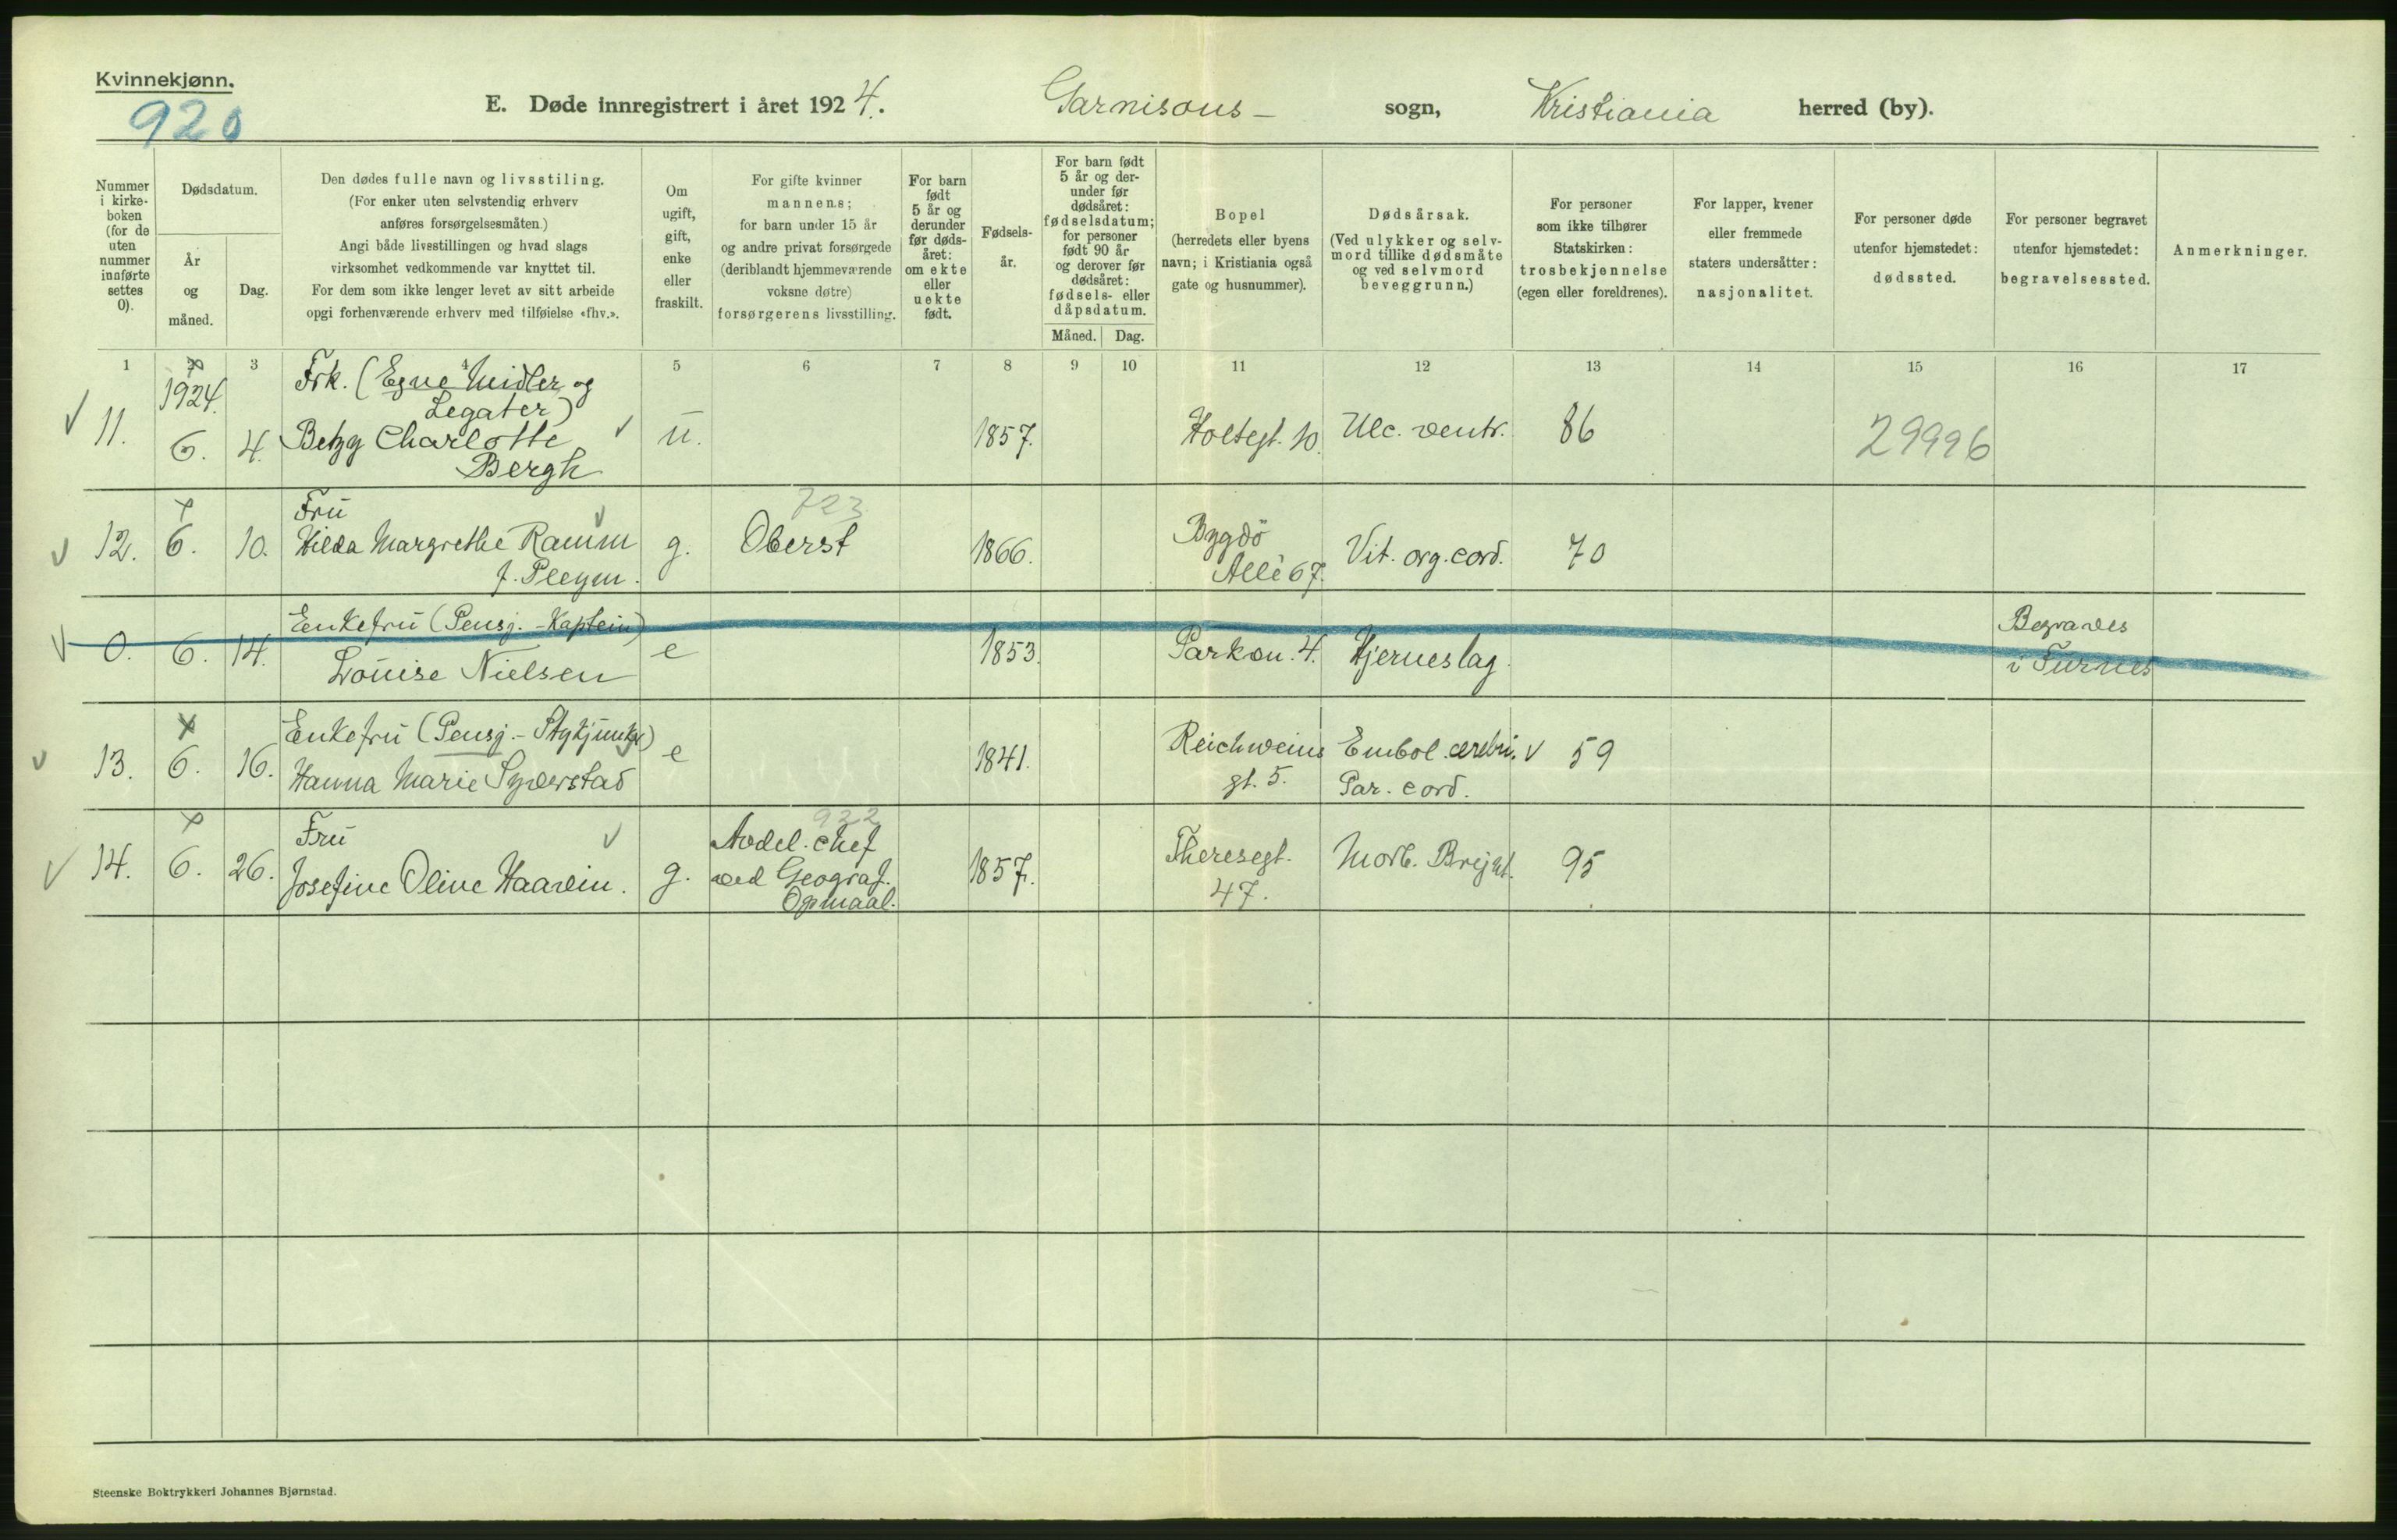 Kvinnekjønn.
920
E. Døde innregistrert i året 1924. Garnisons- sogn, Kristiania herred (by).
Nummer i kirke- boken (for de uten nummer innførte settes 0).
Dødsdatum.
År og måned.
Dag.
Den dødes fulle navn og livsstiling.
(For enker uten selvstendig erhverv
anføres forsørgelsesmåten.)
Angi både livsstillingen og hvad slags
virksomhet vedkommende var knyttet til.
For dem som ikke lenger levet av sitt arbeide
opgi forhenværende erhverv med tilføielse «fhv.».
Om ugift, gift, enke eller fraskilt.
For gifte kvinner
mannens;
for barn under 15 år
og andre privat forsørgede
(deriblandt hjemmeværende
voksne døtre)
forsørgerens livsstilling.
For barn født 5 år og derunder før døds- året: om ekte eller uekte født.
Fødsels- år.
For barn født
5 år og der-
under før
dødsåret:
fødselsdatum;
for personer
født 90 år
og derover før
dødsåret:
fødsels- eller
dåpsdatum.
Måned. Dag.
Bopel
(herredets eller byens
navn; i Kristiania også
gate og husnummer).
Dødsårsak.
(Ved ulykker og selv-
mord tillike dødsmåte
og ved selvmord
beveggrunn.)
For personer
som ikke tilhører
Statskirken:
trosbekjennelse
(egen eller foreldrenes).
For lapper, kvener
eller fremmede
staters undersåtter:
nasjonalitet.
For personer døde
utenfor hjemstedet:
dødssted.
For personer begravet
utenfor hjemstedet:
begravelsessted.
Anmerkninger.
1 2 3 4 5 6 7 8 9 10 11 12 13 14 15 16 17
1924. Frk. (Egne Midler og
Legater)
11. 6. 4. Betzy Charlotte u. 1857. Holtegt. 10. Ulc. ventr. 86 29996
Bergh
Fru 723
12. 6. 10. Hilda Margrethe Ramm g. Oberst 1866. Bygdö Vit. org. cord. 70
f. Pleym. Allé 67.
Enkefru (Pensj. - Kaptein) Begraves
0. 6. 14. Louise Nielsen e 1853. Parkvn. 4. Hjerneslag. i Furnes
Enkefru (Pensj. - Stykjunker)
13. 6. 16. Hanna Marie Syverstad e 1841. Reichweins Embol. cerebri. 59
gt. 5. Par. cord.
Fru 922
Avdel. chef
14. 6. 26. Josefine Oline Haavin. g. ved Geograf. 1857. Theresegt. Morb. Bright. 95
Opmaal. 47.
Steenske Boktrykkeri Johannes Bjørnstad.